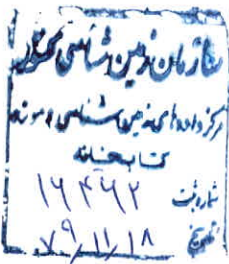 سازمان زمین شناسی کشور
مرکز داده‌های زمین شناسی و موزه
کتابخانه
شماره ثبت ۱۶۴۶۲
تاریخ ۷۹/۱۱/۱۸